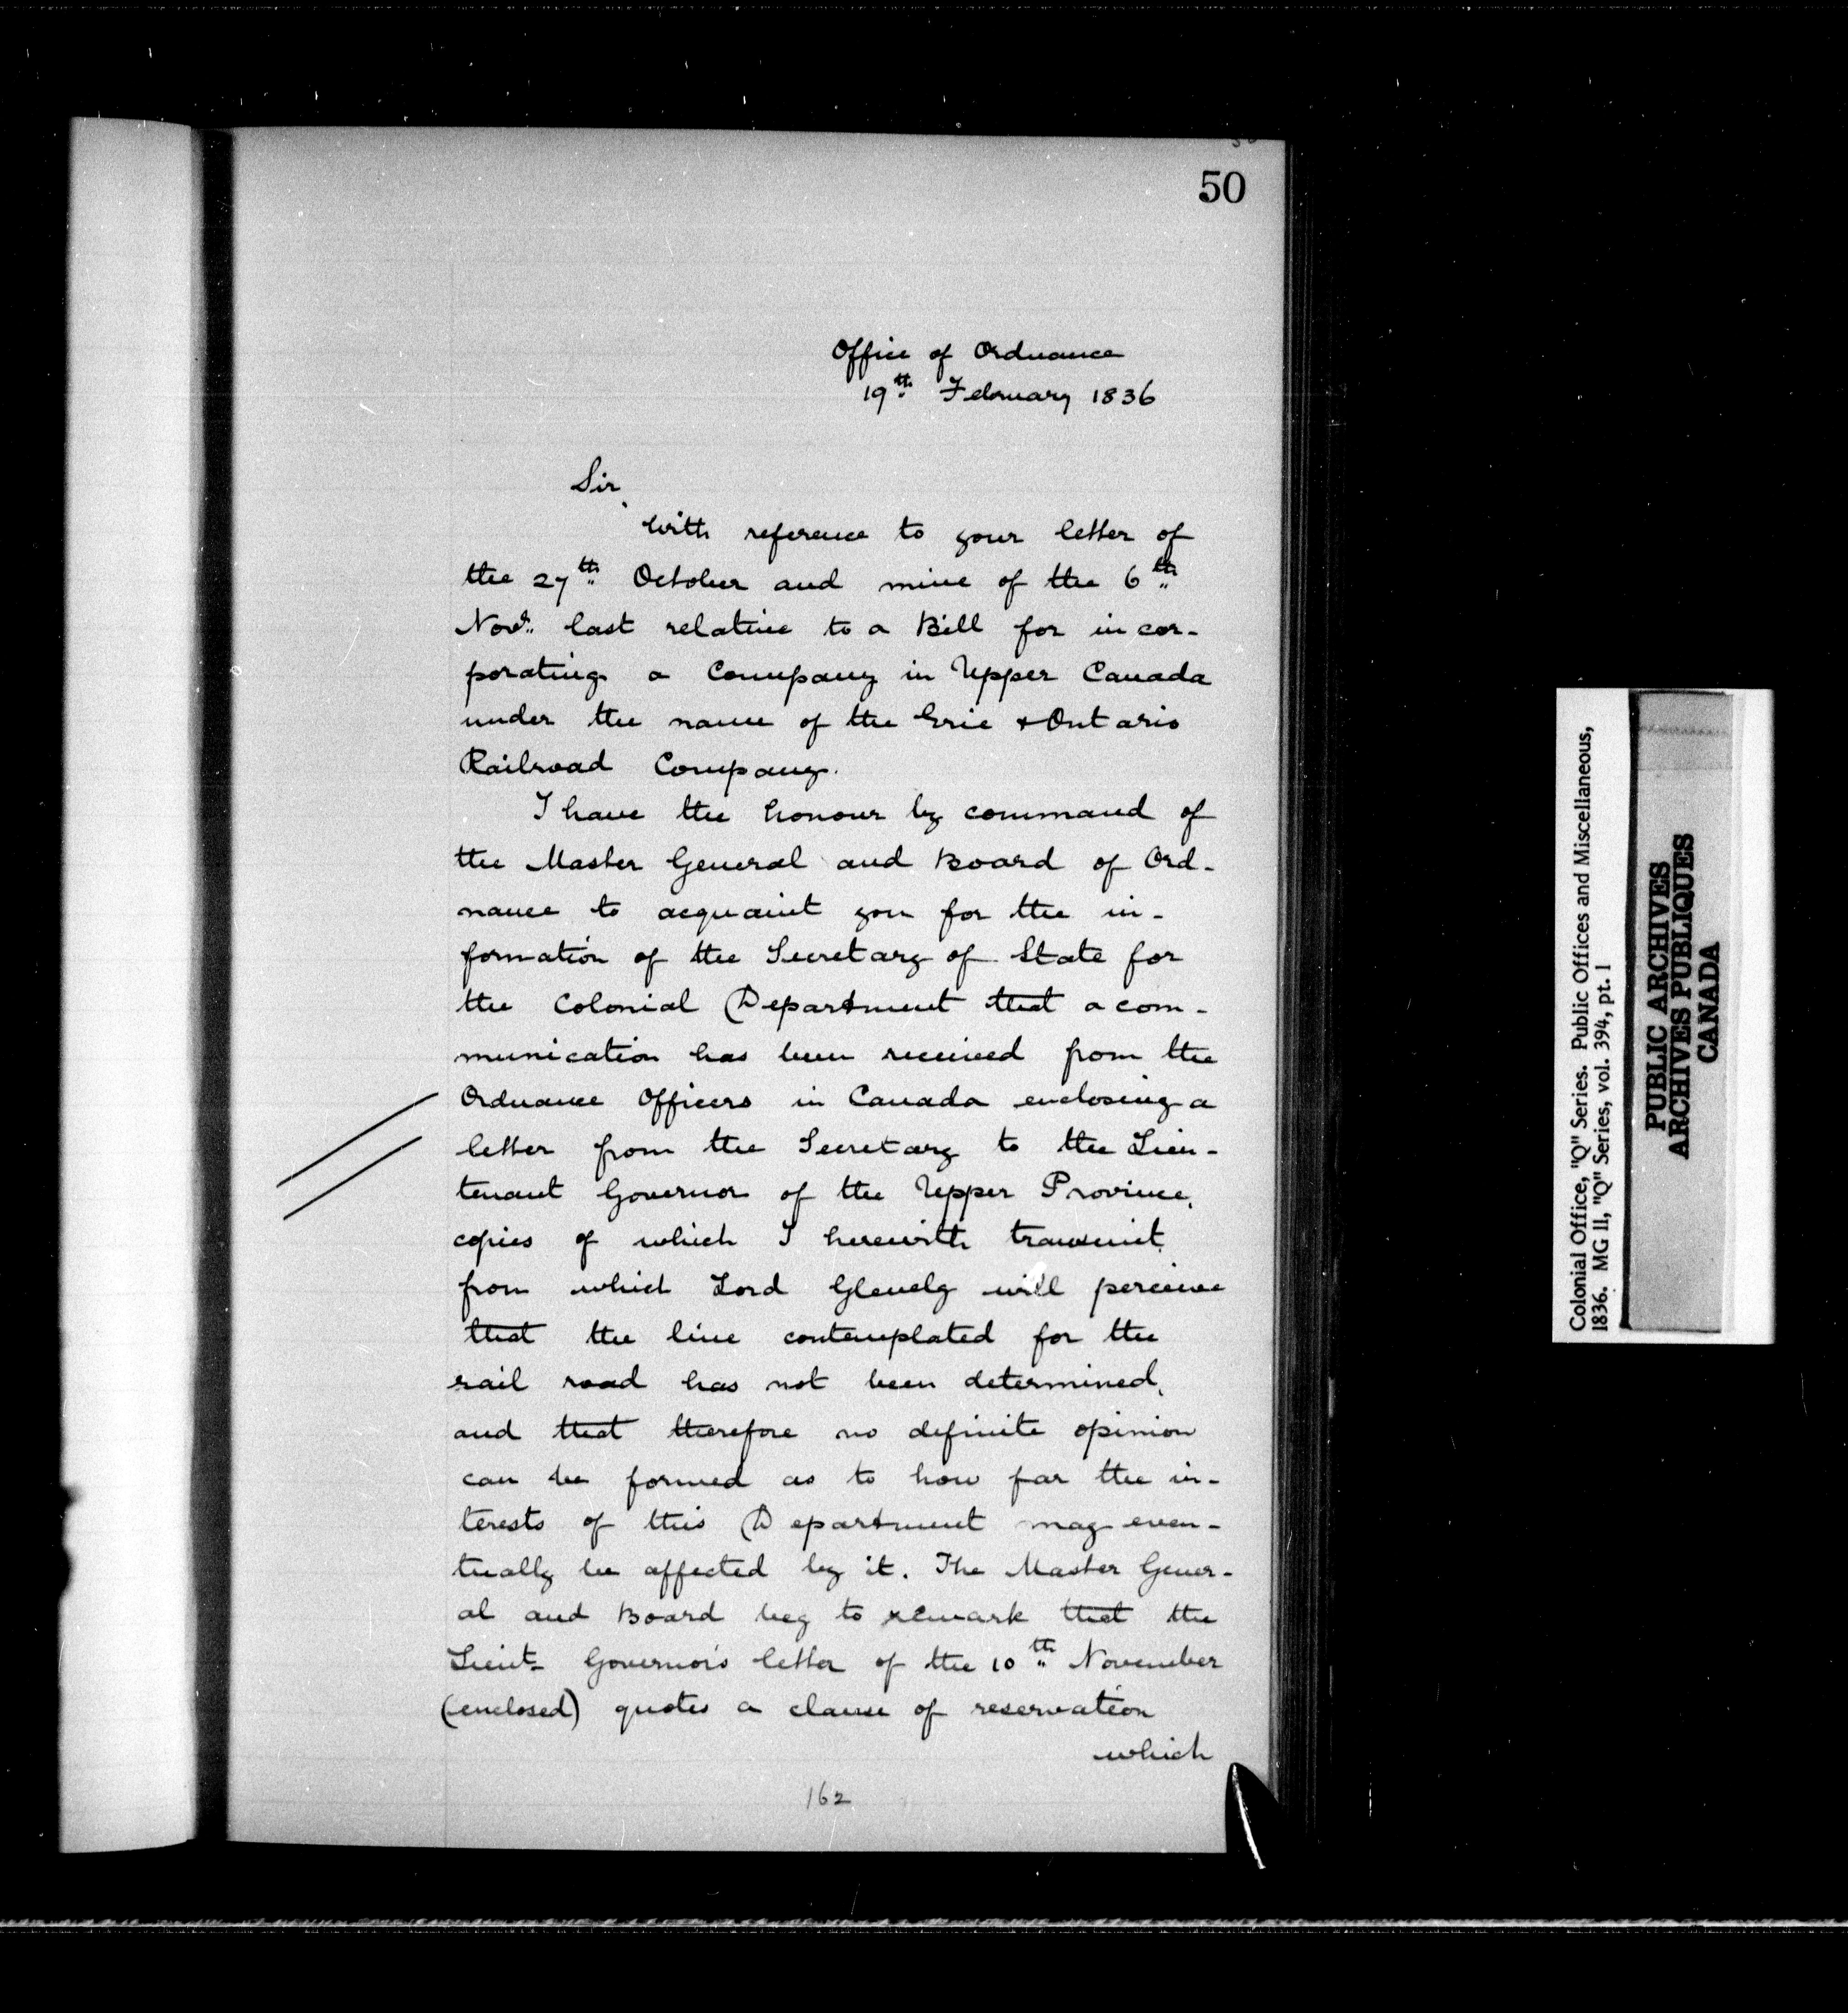 50
Office of Ordnance
19th February 1836
Sir,
With reference to your letter of
the 27th October and mine of the 6th
Novr. last relative to a Bill for incor-
porating a Company in Upper Canada
under the name of the Erie & Ontario
Railroad Company.
I have the honour by command of
the Master General and Board of Ord-
nance to acquaint you for the in-
formation of the Secretary of State for
the Colonial Department that a com-
munication has been received from the
Ordnance Officers in Canada enclosing a
letter from the Secretary to the Lieu-
tenant Governor of the Upper Province,
copies of which I herewith transmit,
from which Lord Glenelg will perceive
that the line contemplated for the
rail road has not been determined,
and that therefore no definite opinion
can be formed as to how far the in-
terests of this Department may even-
tually be affected by it. The Master Gener-
al and Board beg to remark that the
Lieut. Governor's letter of the 10th November
(enclosed) quotes a clause of reservation
which
162
Colonial Office, "Q" Series. Public Offices and Miscellaneous,
1836. MG 11, "Q" Series, vol. 394, pt. 1
PUBLIC ARCHIVES
ARCHIVES PUBLIQUES
CANADA